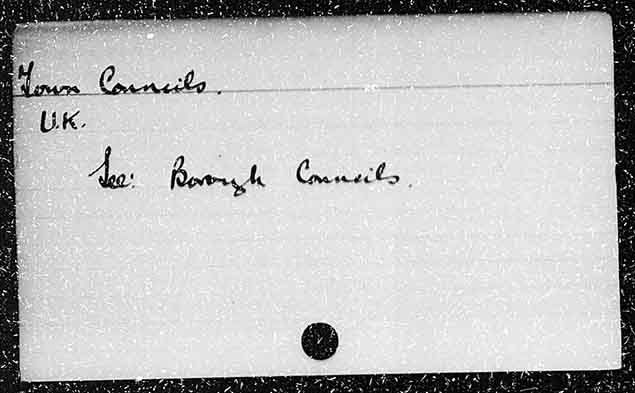 Town Councils.
U.K.
See: Borough Councils.